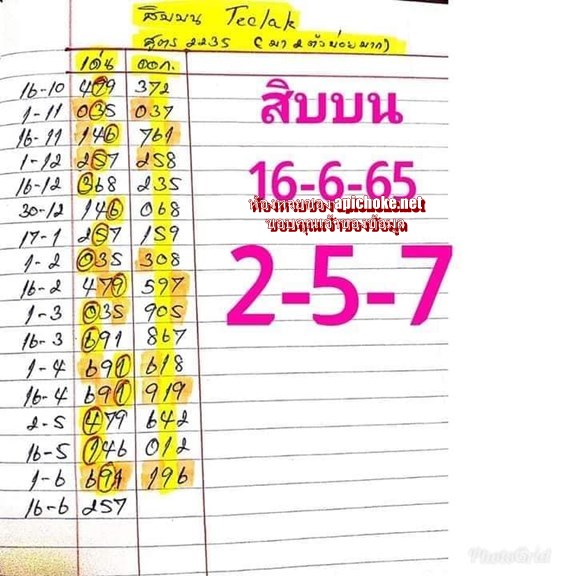 สิบบน Teelak
สูตร 2235 (มา 2 ตัวบ่อยมาก)
เด่น ออก.
16-10 479 372
1-11 035 037
16-11 146 761
1-12 257 258
16-12 368 235
30-12 146 068
17-1 257 159
1-2 035 308
16-2 479 597
1-3 035 905
16-3 691 867
1-4 691 618
16-4 691 919
2-5 479 642
16-5 146 012
1-6 691 196
16-6 257
สิบบน
16-6-65
apichoke.net
ขอบคุณเจ้าของข้อมูล
2-5-7
PhotoGrid